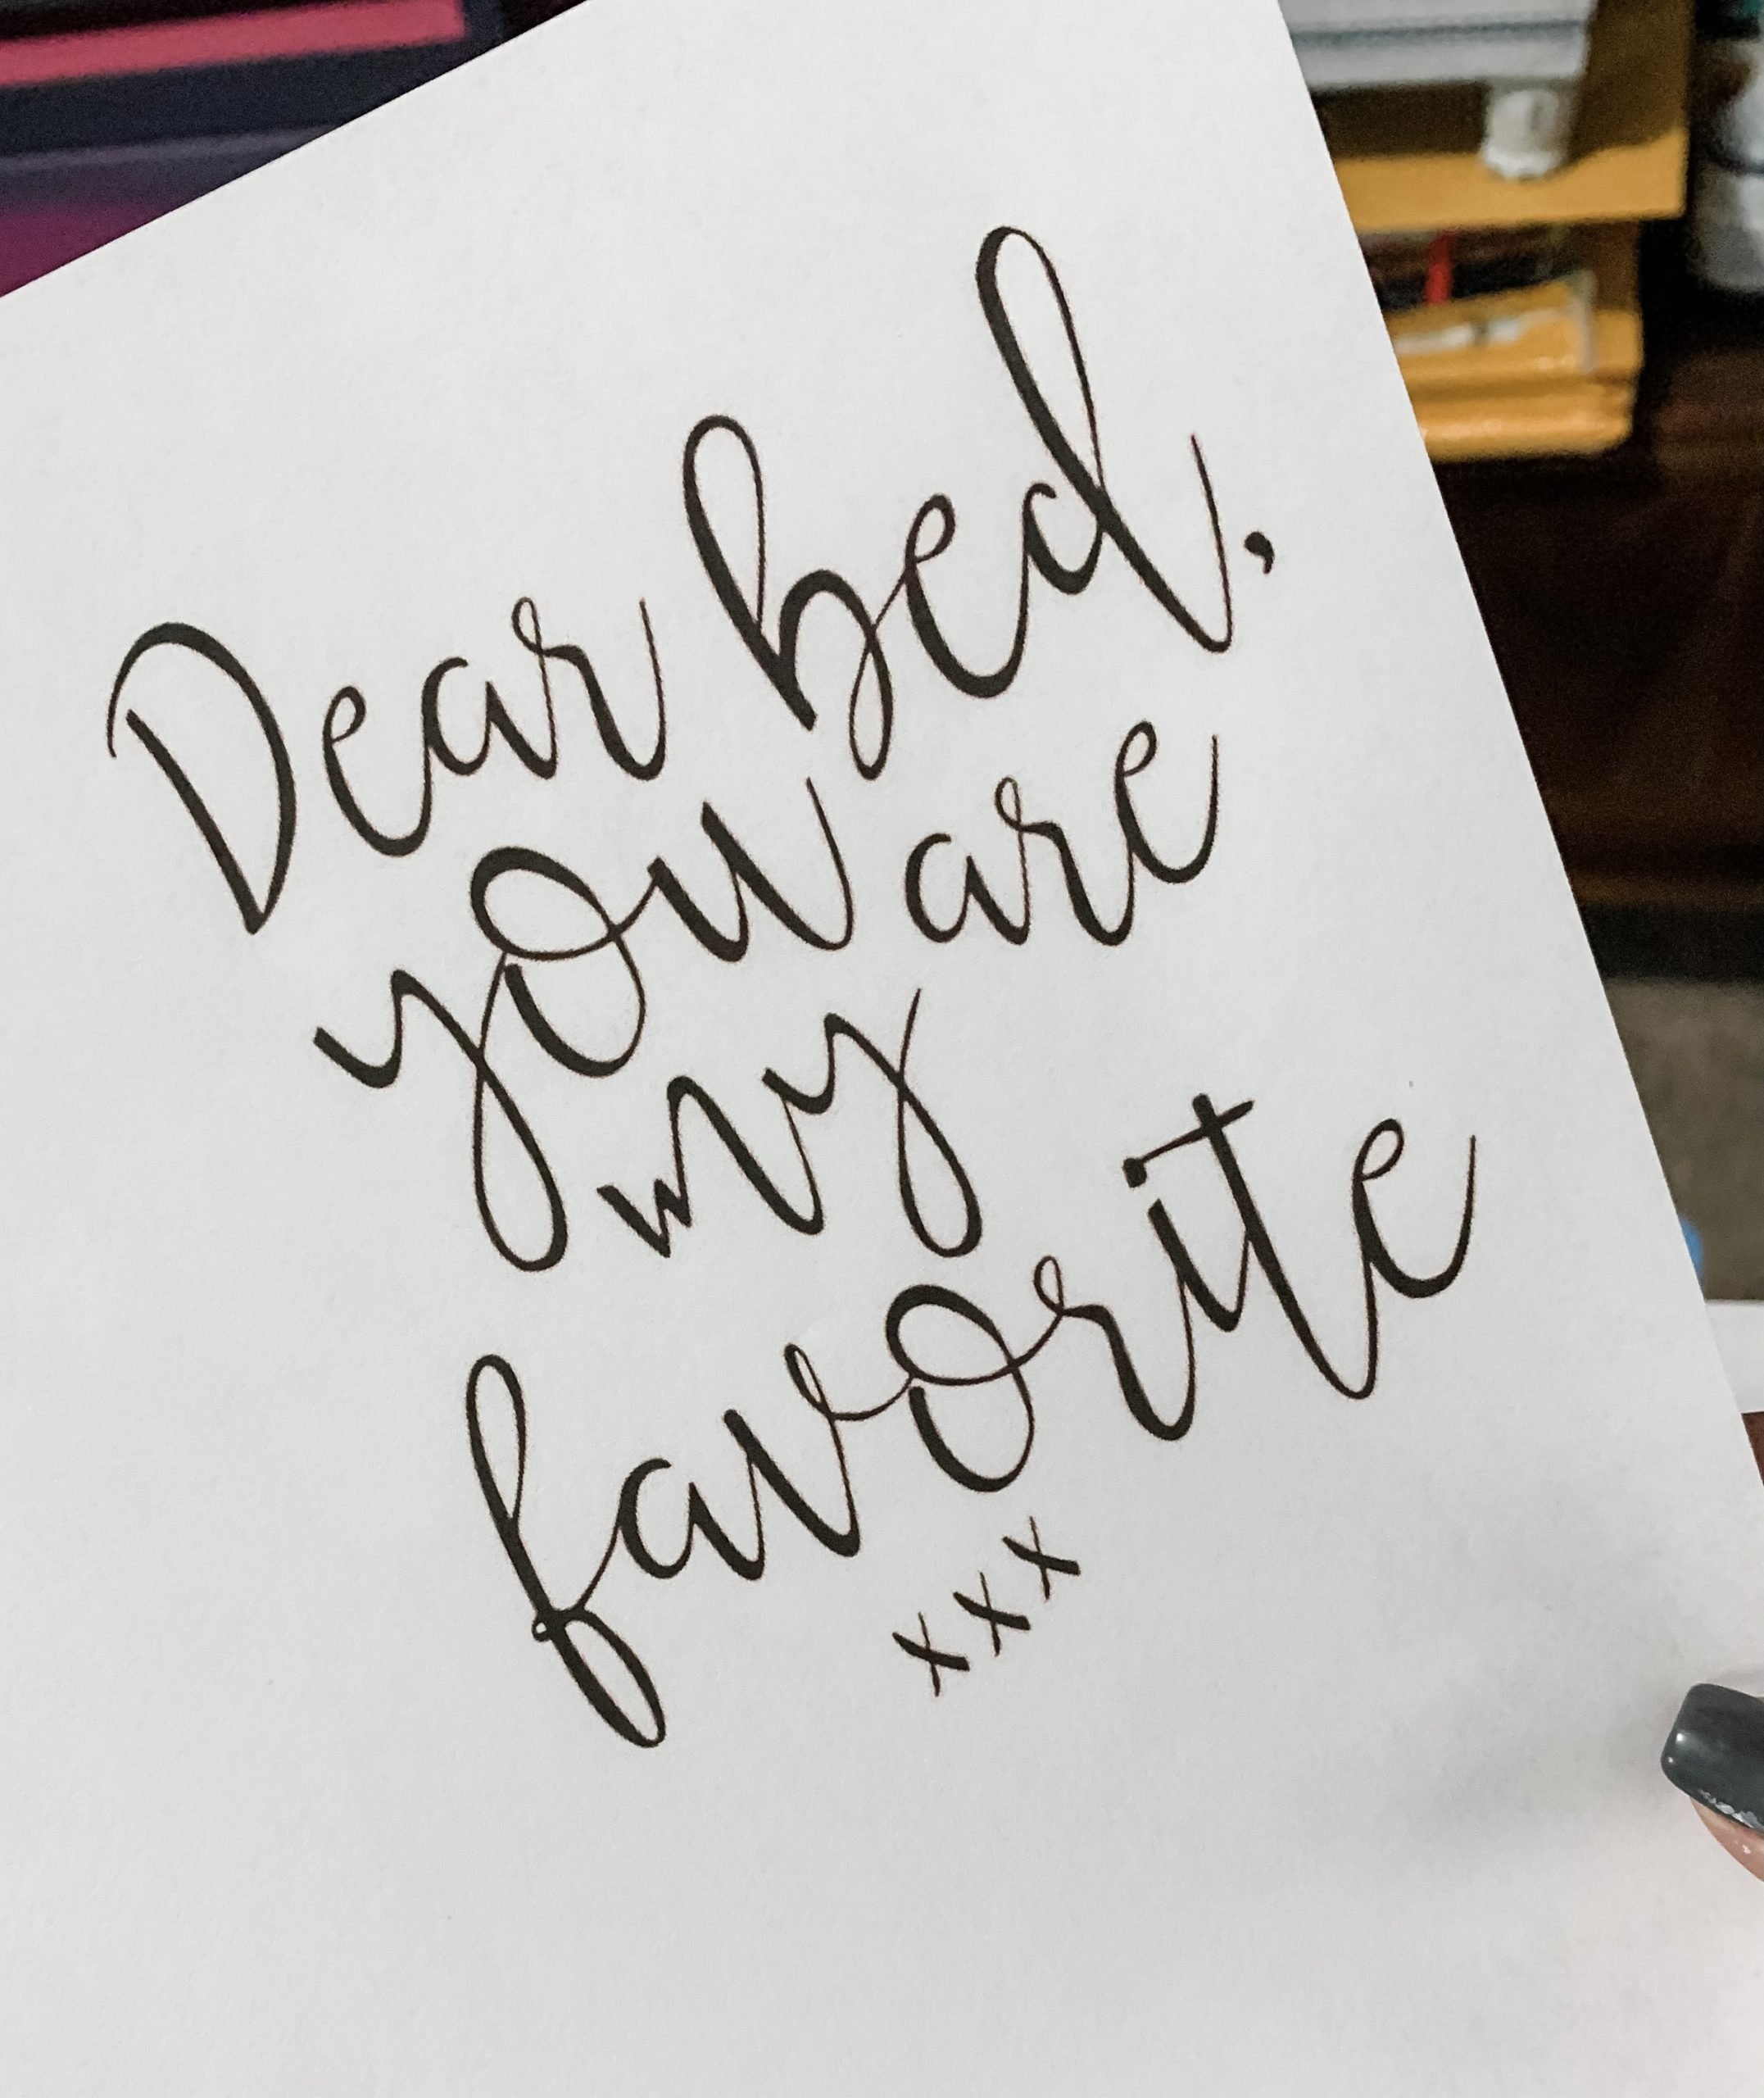 Dear bed,
you are
my
favorite
xxx